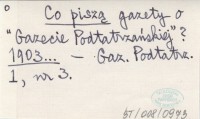 o
Co piszą gazety o
"Gazecie Podtatrzańskiej"?
1903... – Gaz. Podtatrz.
1, nr 3.
ST/008/0973